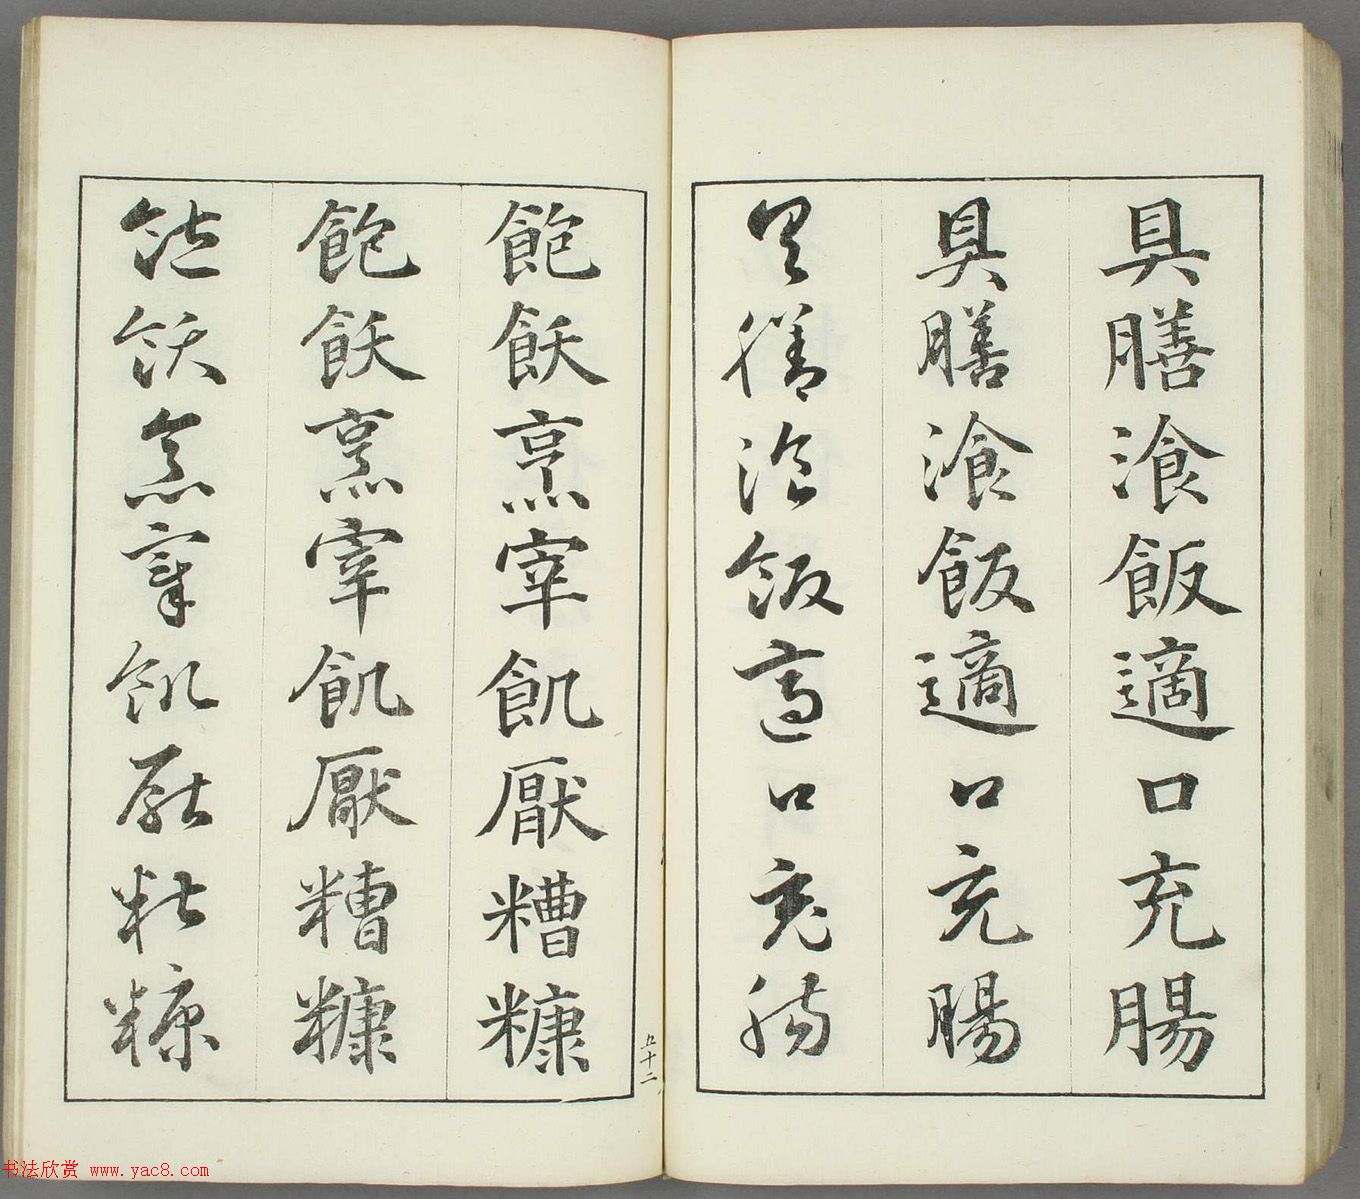 具膳飡飯適口充腸
具膳飡飯適口充腸
具膳飡飯適口充腸
飽飫烹宰飢厭糟糠
飽飫烹宰飢厭糟糠
飽飫烹宰飢厭糟糠
五十二
书法欣赏 www.yac8.com